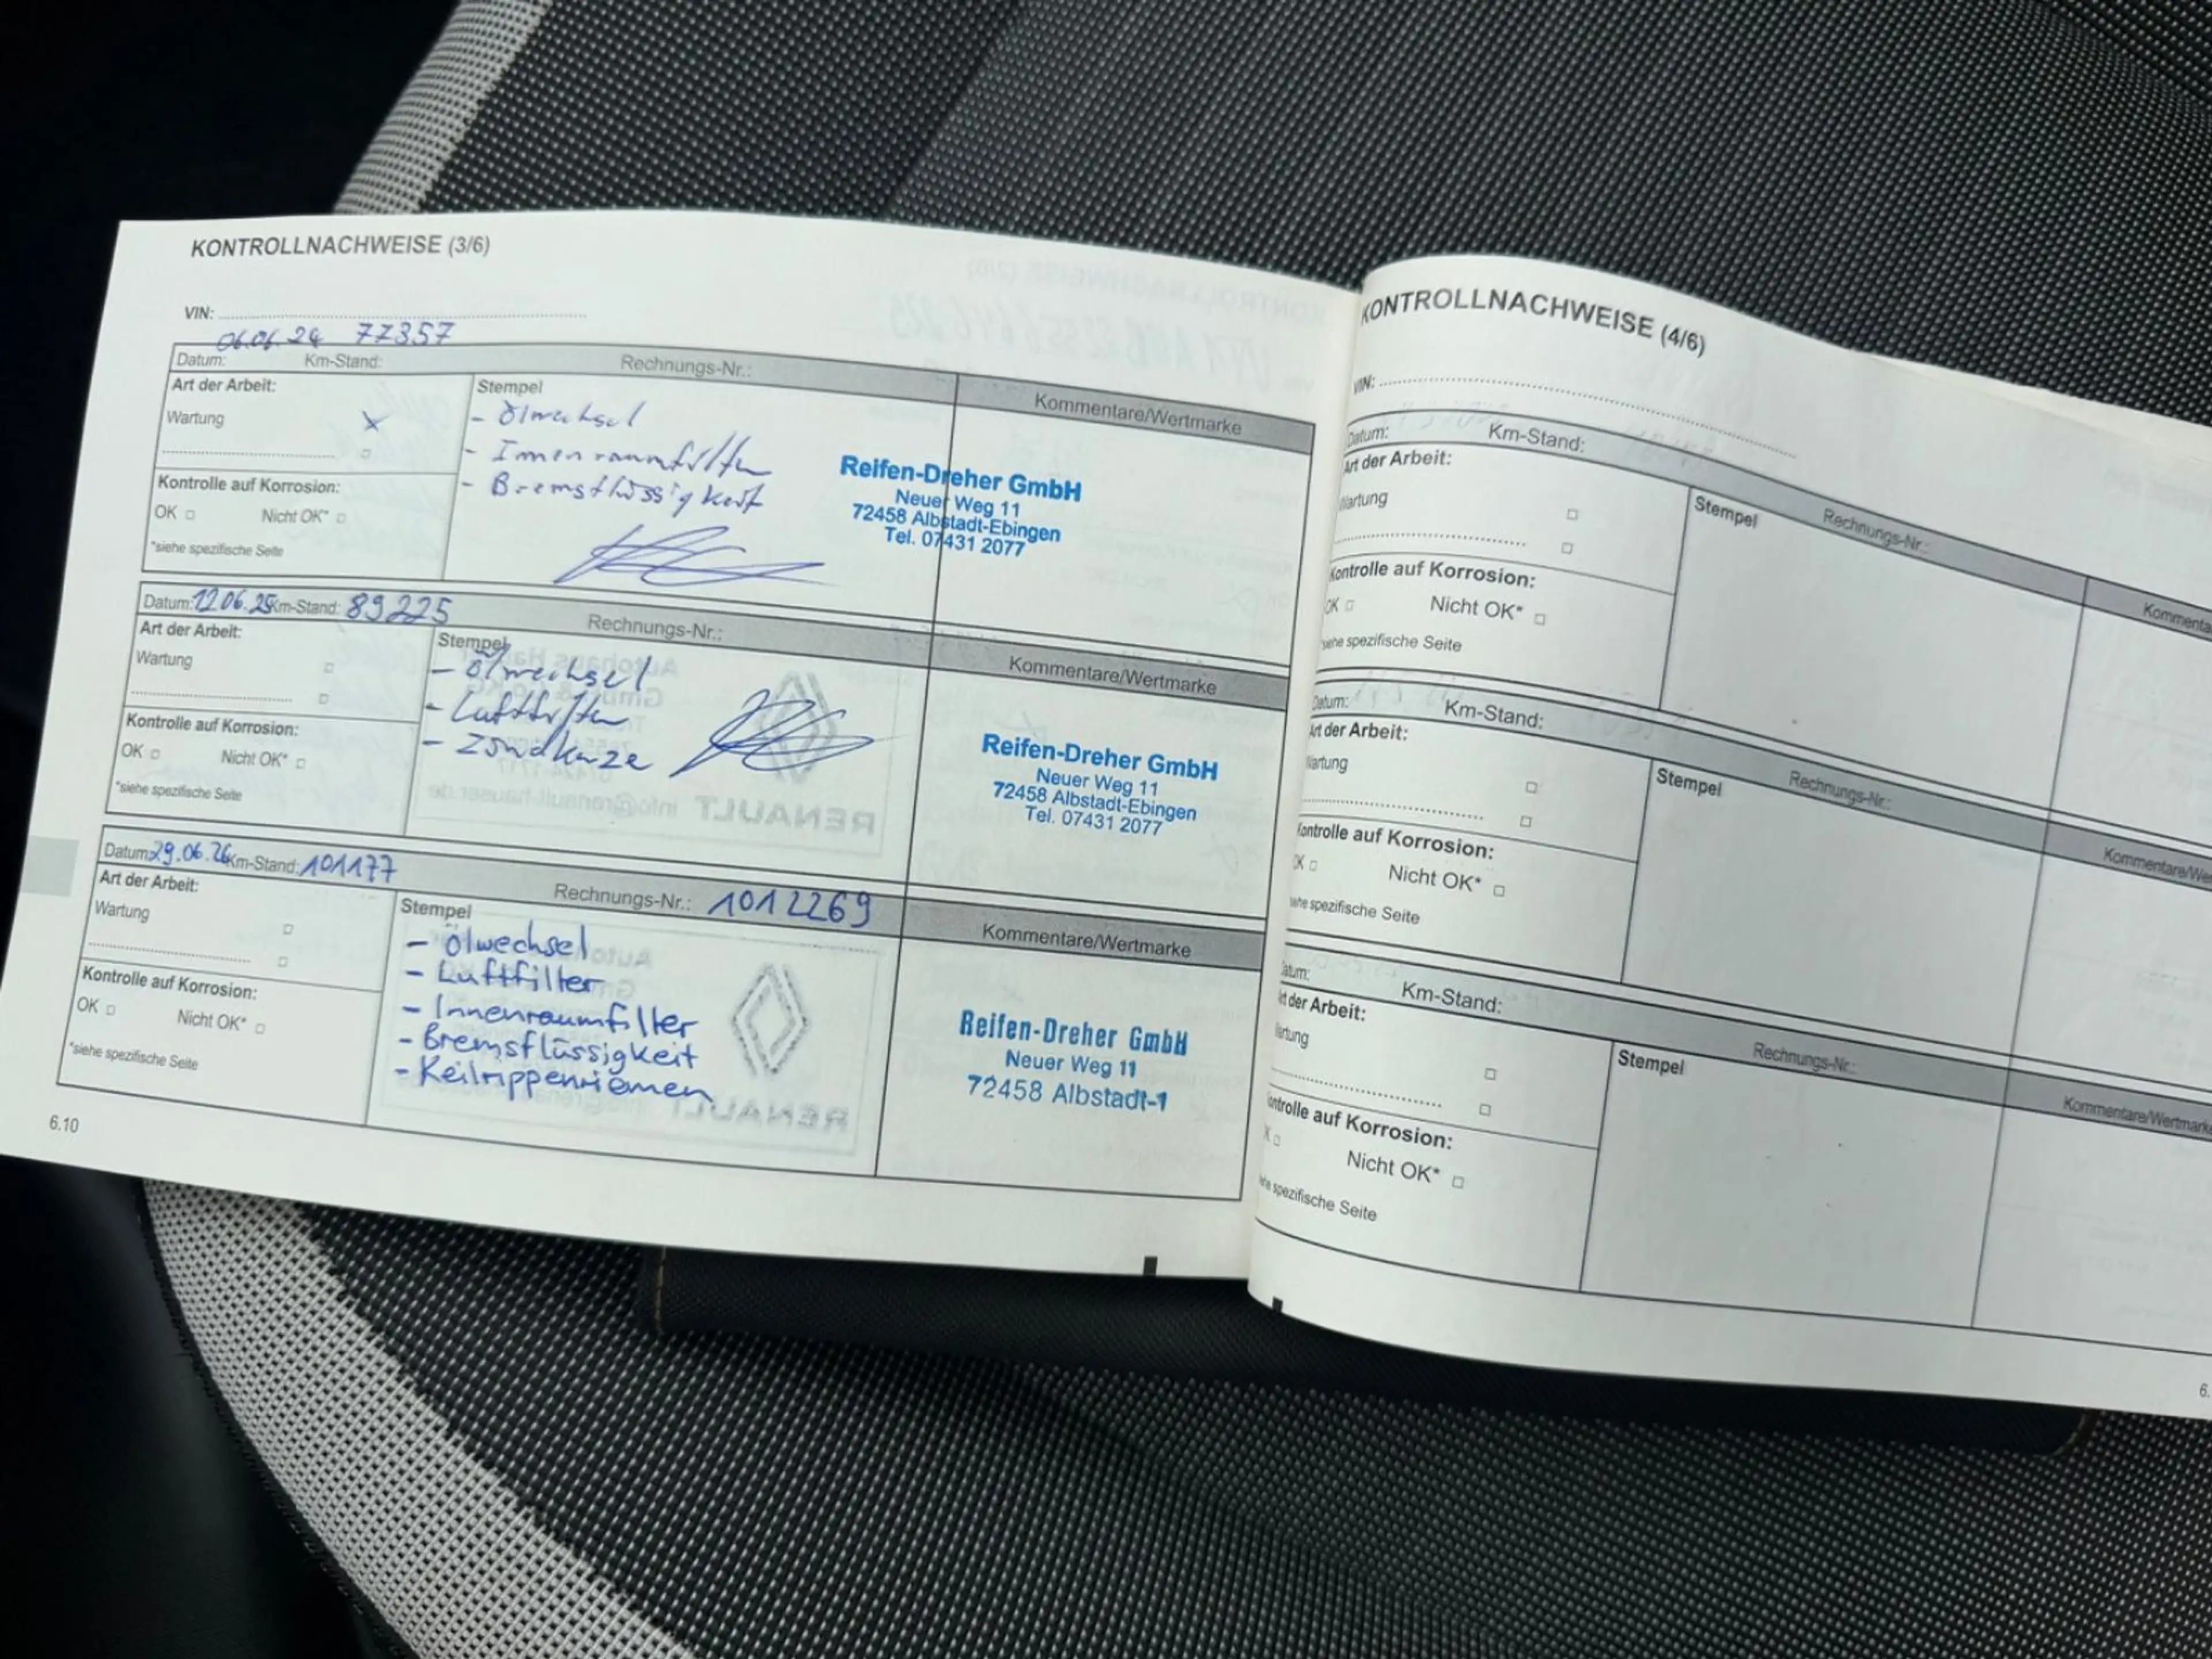 KONTROLLNACHWEISE (3/6)
VIN:
06.06.24 77357
Datum: Km-Stand: Rechnungs-Nr.:
Art der Arbeit:
Wartung X
Kontrolle auf Korrosion:
OK □ Nicht OK* □
*siehe spezifische Seite
Stempel
- Ölwechsel
- Innenraumfilter
- Bremsflüssigkeit
Kommentare/Wertmarke
Reifen-Dreher GmbH
Neuer Weg 11
72458 Albstadt-Ebingen
Tel. 07431 2077
Datum: 12.06.25 Km-Stand: 89225 Rechnungs-Nr.:
Art der Arbeit:
Wartung □
Kontrolle auf Korrosion:
OK □ Nicht OK* □
*siehe spezifische Seite
Stempel
- Ölwechsel
- Luftfilter
- Zündkerze
Kommentare/Wertmarke
Reifen-Dreher GmbH
Neuer Weg 11
72458 Albstadt-Ebingen
Tel. 07431 2077
Datum: 29.06.26 Km-Stand: 101177 Rechnungs-Nr.: 1012269
Art der Arbeit:
Wartung □
Kontrolle auf Korrosion:
OK □ Nicht OK* □
*siehe spezifische Seite
Stempel
- Ölwechsel
- Luftfilter
- Innenraumfilter
- Bremsflüssigkeit
- Keilrippenriemen
Kommentare/Wertmarke
Reifen-Dreher GmbH
Neuer Weg 11
72458 Albstadt-1
6.10
KONTROLLNACHWEISE (4/6)
VIN:
Datum: Km-Stand: Rechnungs-Nr.:
Art der Arbeit:
Wartung □
Kontrolle auf Korrosion:
OK □ Nicht OK* □
siehe spezifische Seite
Stempel
Kommenta
Datum: Km-Stand: Rechnungs-Nr.:
Art der Arbeit:
Wartung □
Kontrolle auf Korrosion:
OK □ Nicht OK* □
siehe spezifische Seite
Stempel
Kommentare/Wer
atum: Km-Stand: Rechnungs-Nr.:
t der Arbeit:
artung □
ontrolle auf Korrosion:
K □ Nicht OK* □
ehe spezifische Seite
Stempel
Kommentare/Wertmarke
6.